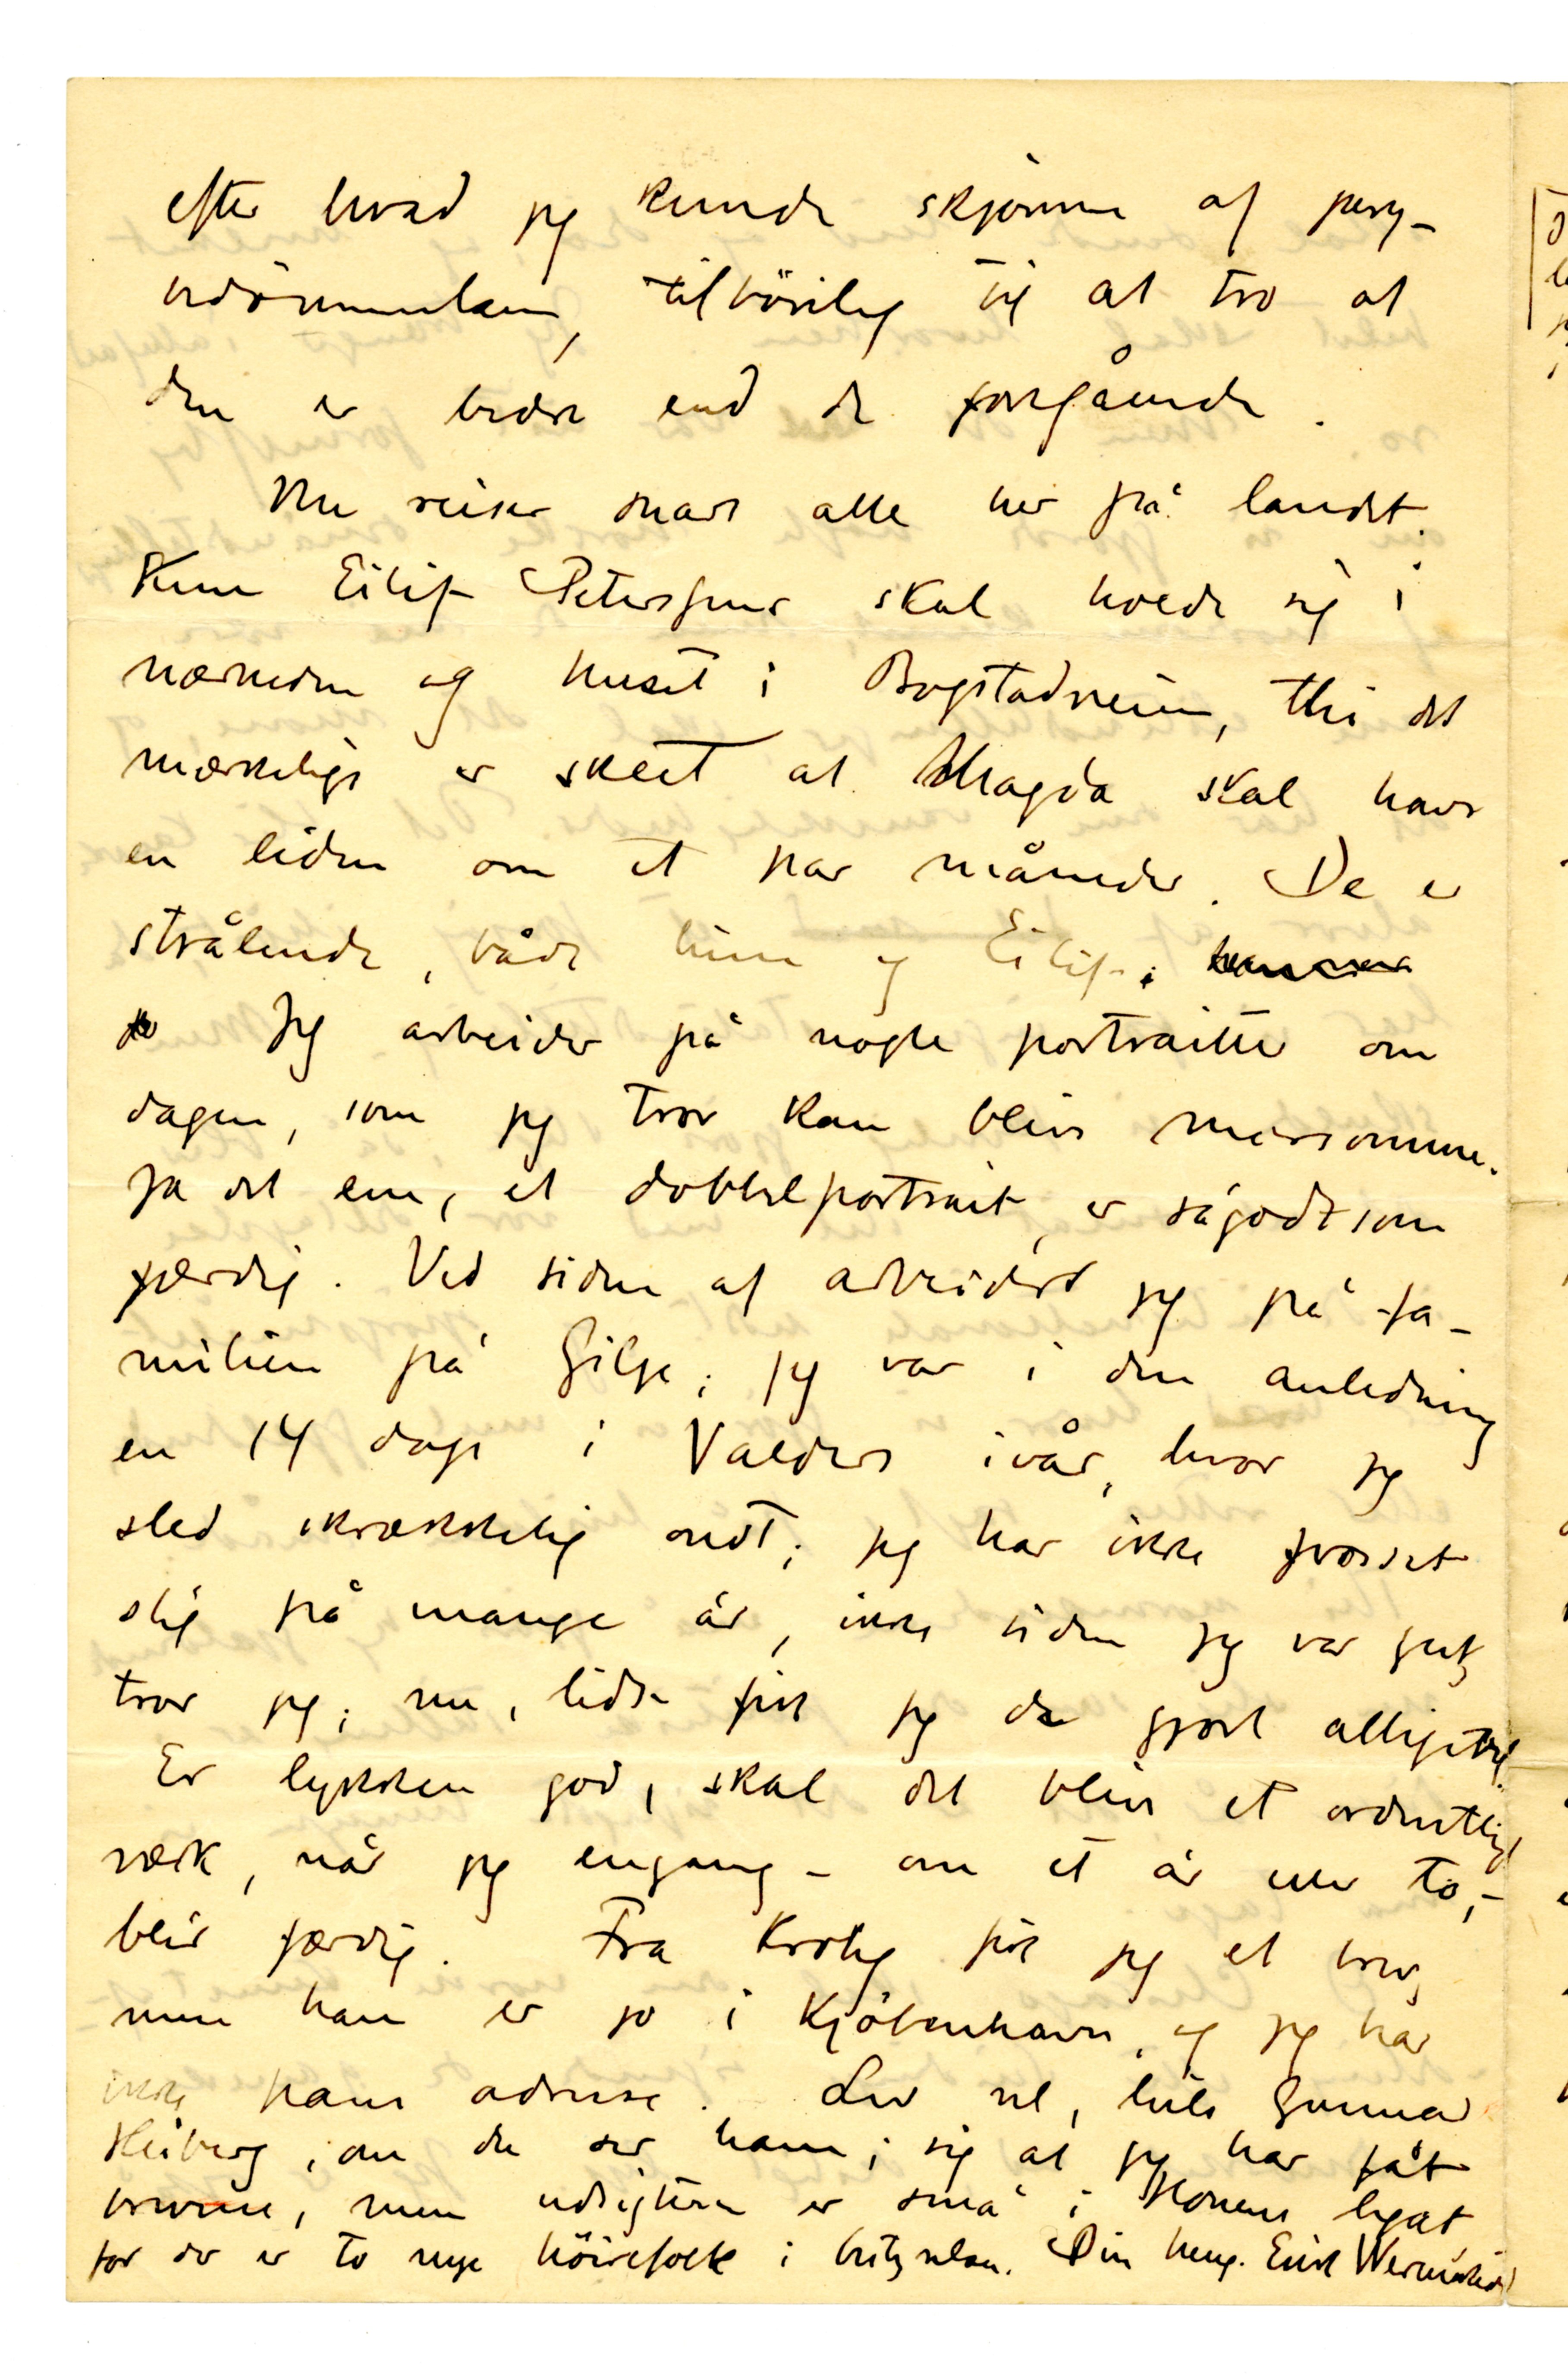 efter hvad jeg kunde skjønne af jury-
bedømmelsen, tilbøielig til at tro at
den er bedre end de foregående.
Nu reiser snart alle her på landet.
Kun Eilif Peterssens skal holde sig i
nærheden og huset i Bogstadveien, thi det
mærkelige er skeet at Magda skal have
en liden om et par måneder. De er
strålende, både hun og Eilif.
Jeg arbeider på nogle portraitter om
dagen, som jeg tror kan blive morsomme.
Ja det ene, et dobbeltportrait, er sågodtsom
færdig. Ved siden af arbeider jeg på fa-
milien på Gilje; jeg var i den anledning
en 14 dage i Valders ivår, hvor jeg
sled skrækkelig ondt; jeg har ikke frosset
slig på mange år, ikke siden jeg var gut,
tror jeg; nu, lidt fik jeg da gjort alligevel.
Er lykken god, skal det blive et ordentligt
værk, når jeg engang – om et år eller to, –
blir færdig. Fra Krohg fik jeg et brev,
men han er jo i Kjøbenhavn, og jeg har
ikke hans adresse. Lev vel, hils Gunnar
Heiberg, om du ser ham; sig at jeg har fåt
brevene, men udsigterne er små i Honens legat
for der er to nye høirefolk i bestyrelsen. Din heng. Erik Werenskiold